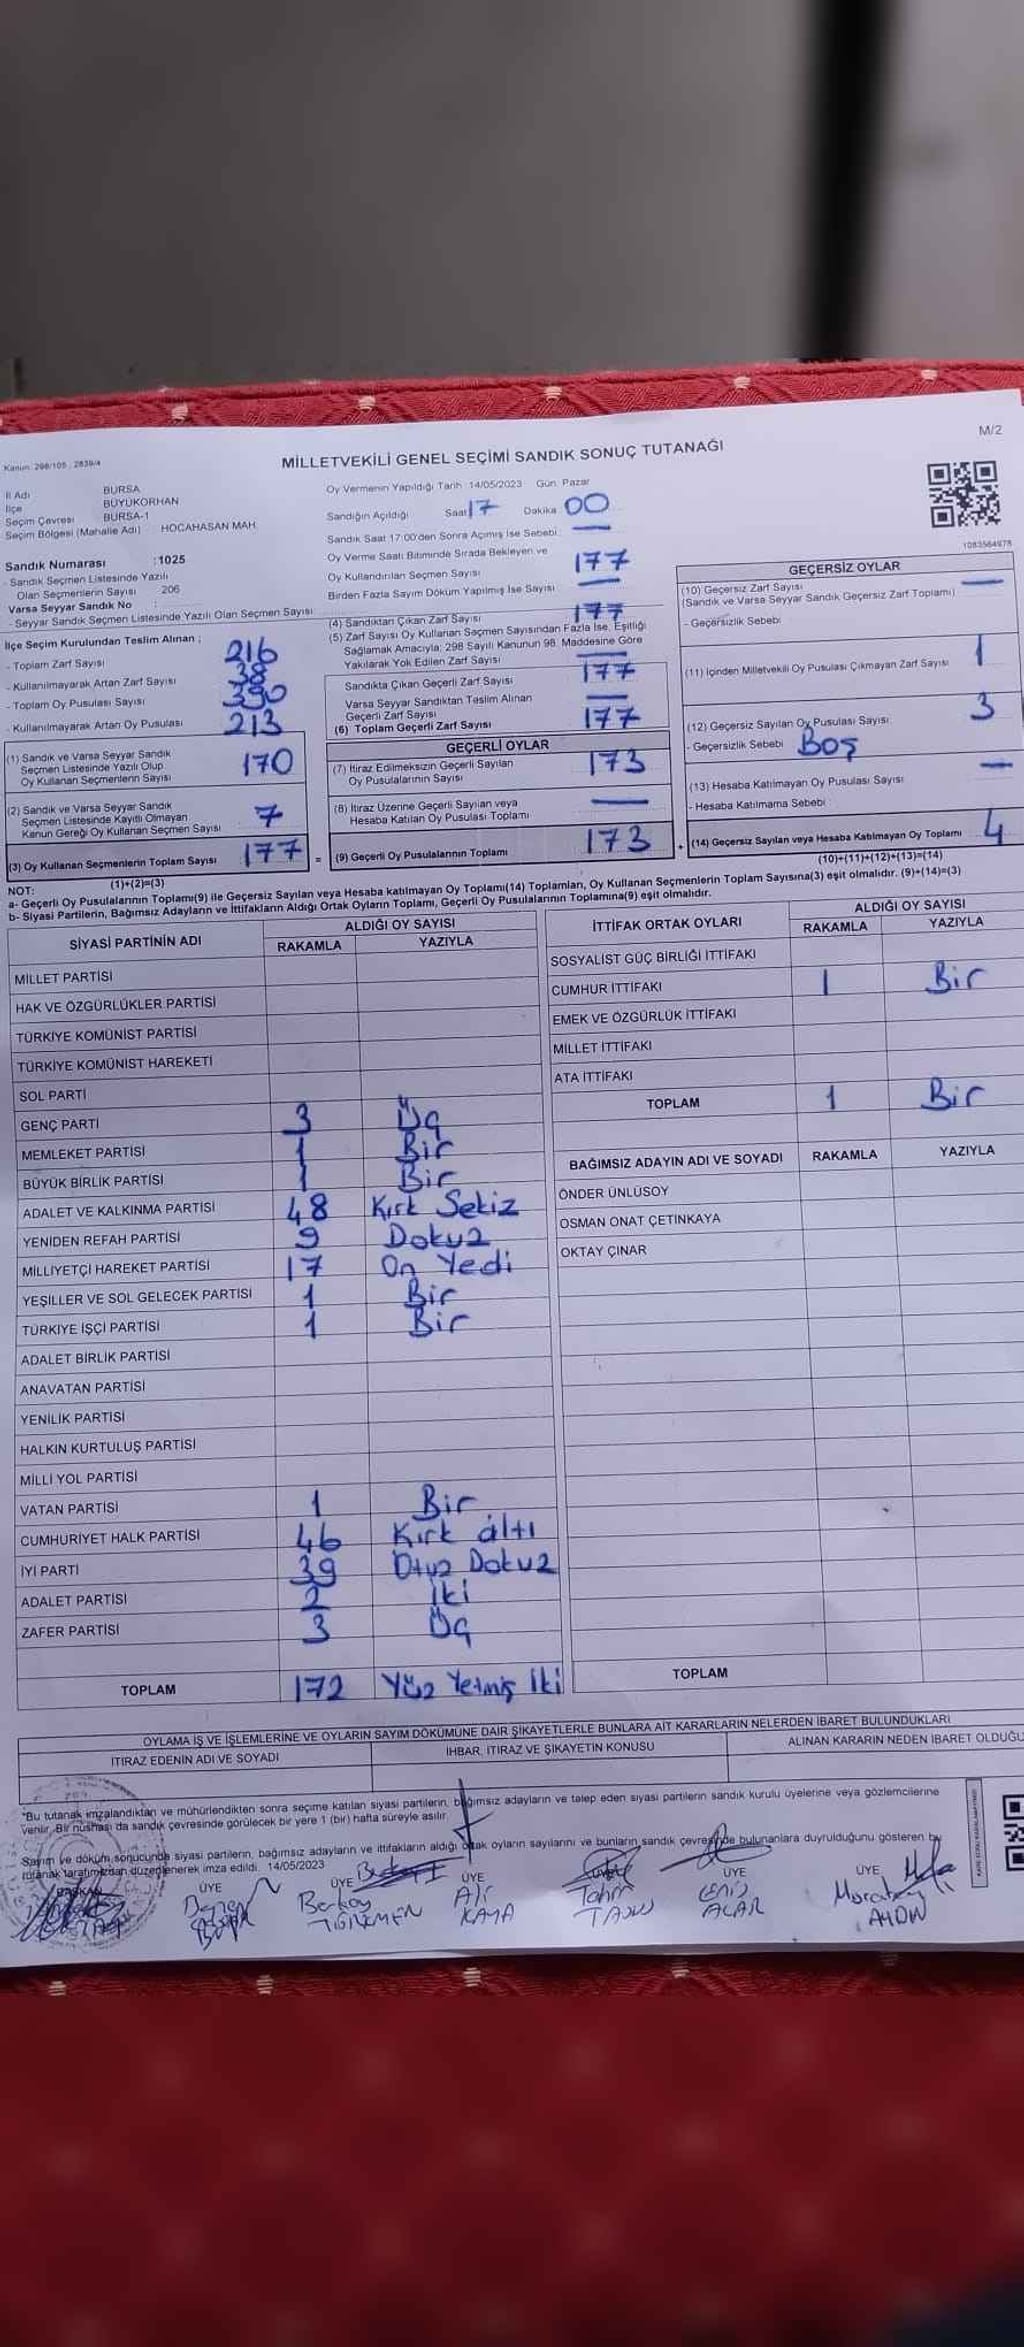 M/2
Kanun: 298/105 ; 2839/4
MİLLETVEKİLİ GENEL SEÇİMİ SANDIK SONUÇ TUTANAĞI
İl Adı BURSA
İlçe BÜYÜKORHAN
Seçim Çevresi BURSA-1
Seçim Bölgesi (Mahalle Adı) HOCAHASAN MAH.
Sandık Numarası :1025
- Sandık Seçmen Listesinde Yazılı
Olan Seçmenlerin Sayısı 206
Varsa Seyyar Sandık No :
- Seyyar Sandık Seçmen Listesinde Yazılı Olan Seçmen Sayısı :
İlçe Seçim Kurulundan Teslim Alınan ;
- Toplam Zarf Sayısı 216
- Kullanılmayarak Artan Zarf Sayısı 38
- Toplam Oy Pusulası Sayısı 390
- Kullanılmayarak Artan Oy Pusulası 213
(1) Sandık ve Varsa Seyyar Sandık
Seçmen Listesinde Yazılı Olup
Oy Kullanan Seçmenlerin Sayısı 170
(2) Sandık ve Varsa Seyyar Sandık
Seçmen Listesinde Kayıtlı Olmayan
Kanun Gereği Oy Kullanan Seçmen Sayısı 7
(3) Oy Kullanan Seçmenlerin Toplam Sayısı 177 =
(1)+(2)=(3)
Oy Vermenin Yapıldığı Tarih :14/05/2023 Gün: Pazar
Sandığın Açıldığı Saat 17 Dakika 00
Sandık Saat 17:00'den Sonra Açımış İse Sebebi: —
Oy Verme Saati Bitiminde Sırada Bekleyen ve
Oy Kullandırılan Seçmen Sayısı 177
Birden Fazla Sayım Döküm Yapılmış İse Sayısı —
(4) Sandıktan Çıkan Zarf Sayısı 177
(5) Zarf Sayısı Oy Kullanan Seçmen Sayısından Fazla İse, Eşitliği
Sağlamak Amacıyla; 298 Sayılı Kanunun 98. Maddesine Göre
Yakılarak Yok Edilen Zarf Sayısı —
Sandıkta Çıkan Geçerli Zarf Sayısı 177
Varsa Seyyar Sandıktan Teslim Alınan
Geçerli Zarf Sayısı —
(6) Toplam Geçerli Zarf Sayısı 177
GEÇERLİ OYLAR
(7) İtiraz Edilmeksizin Geçerli Sayılan
Oy Pusulalarının Sayısı 173
(8) İtiraz Üzerine Geçerli Sayılan veya
Hesaba Katılan Oy Pusulası Toplamı —
(9) Geçerli Oy Pusulalarının Toplamı 173 +
1083564978
GEÇERSİZ OYLAR
(10) Geçersiz Zarf Sayısı —
(Sandık ve Varsa Seyyar Sandık Geçersiz Zarf Toplamı)
- Geçersizlik Sebebi
(11) İçinden Milletvekili Oy Pusulası Çıkmayan Zarf Sayısı 1
(12) Geçersiz Sayılan Oy Pusulası Sayısı 3
- Geçersizlik Sebebi Boş
(13) Hesaba Katılmayan Oy Pusulası Sayısı —
- Hesaba Katılmama Sebebi
(14) Geçersiz Sayılan veya Hesaba Katılmayan Oy Toplamı 4
(10)+(11)+(12)+(13)=(14)
NOT:
a- Geçerli Oy Pusulalarının Toplamı(9) ile Geçersiz Sayılan veya Hesaba katılmayan Oy Toplamı(14) Toplamları, Oy Kullanan Seçmenlerin Toplam Sayısına(3) eşit olmalıdır. (9)+(14)=(3)
b- Siyasi Partilerin, Bağımsız Adayların ve İttifakların Aldığı Ortak Oyların Toplamı, Geçerli Oy Pusulalarının Toplamına(9) eşit olmalıdır.
SİYASİ PARTİNİN ADI ALDIĞI OY SAYISI
RAKAMLA YAZIYLA
MİLLET PARTİSİ
HAK VE ÖZGÜRLÜKLER PARTİSİ
TÜRKİYE KOMÜNİST PARTİSİ
TÜRKİYE KOMÜNİST HAREKETİ
SOL PARTİ
GENÇ PARTİ 3 Üç
MEMLEKET PARTİSİ 1 Bir
BÜYÜK BİRLİK PARTİSİ 1 Bir
ADALET VE KALKINMA PARTİSİ 48 Kırk Sekiz
YENİDEN REFAH PARTİSİ 9 Dokuz
MİLLİYETÇİ HAREKET PARTİSİ 17 On Yedi
YEŞİLLER VE SOL GELECEK PARTİSİ 1 Bir
TÜRKİYE İŞÇİ PARTİSİ 1 Bir
ADALET BİRLİK PARTİSİ
ANAVATAN PARTİSİ
YENİLİK PARTİSİ
HALKIN KURTULUŞ PARTİSİ
MİLLİ YOL PARTİSİ
VATAN PARTİSİ 1 Bir
CUMHURİYET HALK PARTİSİ 46 Kırk altı
İYİ PARTİ 39 Otuz Dokuz
ADALET PARTİSİ 2 İki
ZAFER PARTİSİ 3 Üç
TOPLAM 172 Yüz Yetmiş İki
İTTİFAK ORTAK OYLARI ALDIĞI OY SAYISI
RAKAMLA YAZIYLA
SOSYALİST GÜÇ BİRLİĞİ İTTİFAKI
CUMHUR İTTİFAKI 1 Bir
EMEK VE ÖZGÜRLÜK İTTİFAKI
MİLLET İTTİFAKI
ATA İTTİFAKI
TOPLAM 1 Bir
BAĞIMSIZ ADAYIN ADI VE SOYADI RAKAMLA YAZIYLA
ÖNDER ÜNLÜSOY
OSMAN ONAT ÇETİNKAYA
OKTAY ÇINAR
TOPLAM
OYLAMA İŞ VE İŞLEMLERİNE VE OYLARIN SAYIM DÖKÜMÜNE DAİR ŞİKAYETLERLE BUNLARA AİT KARARLARIN NELERDEN İBARET BULUNDUKLARI
İTİRAZ EDENİN ADI VE SOYADI İHBAR, İTİRAZ VE ŞİKAYETİN KONUSU ALINAN KARARIN NEDEN İBARET OLDUĞU
*Bu tutanak imzalandıktan ve mühürlendikten sonra seçime katılan siyasi partilerin, bağımsız adayların ve talep eden siyasi partilerin sandık kurulu üyelerine veya gözlemcilerine
verilir. Bir nüshası da sandık çevresinde görülecek bir yere 1 (bir) hafta süreyle asılır.
Sayım ve döküm sonucunda siyasi partilerin, bağımsız adayların ve ittifakların aldığı ortak oyların sayılarını ve bunların sandık çevresinde bulunanlara duyrulduğunu gösteren bu
tutanak tarafımızdan düzenlenerek imza edildi. 14/05/2023
BAŞKAN ÜYE ÜYE ÜYE ÜYE ÜYE
Berkay Ali KAYA Tahir Deniz ACAR Murat AYDIN